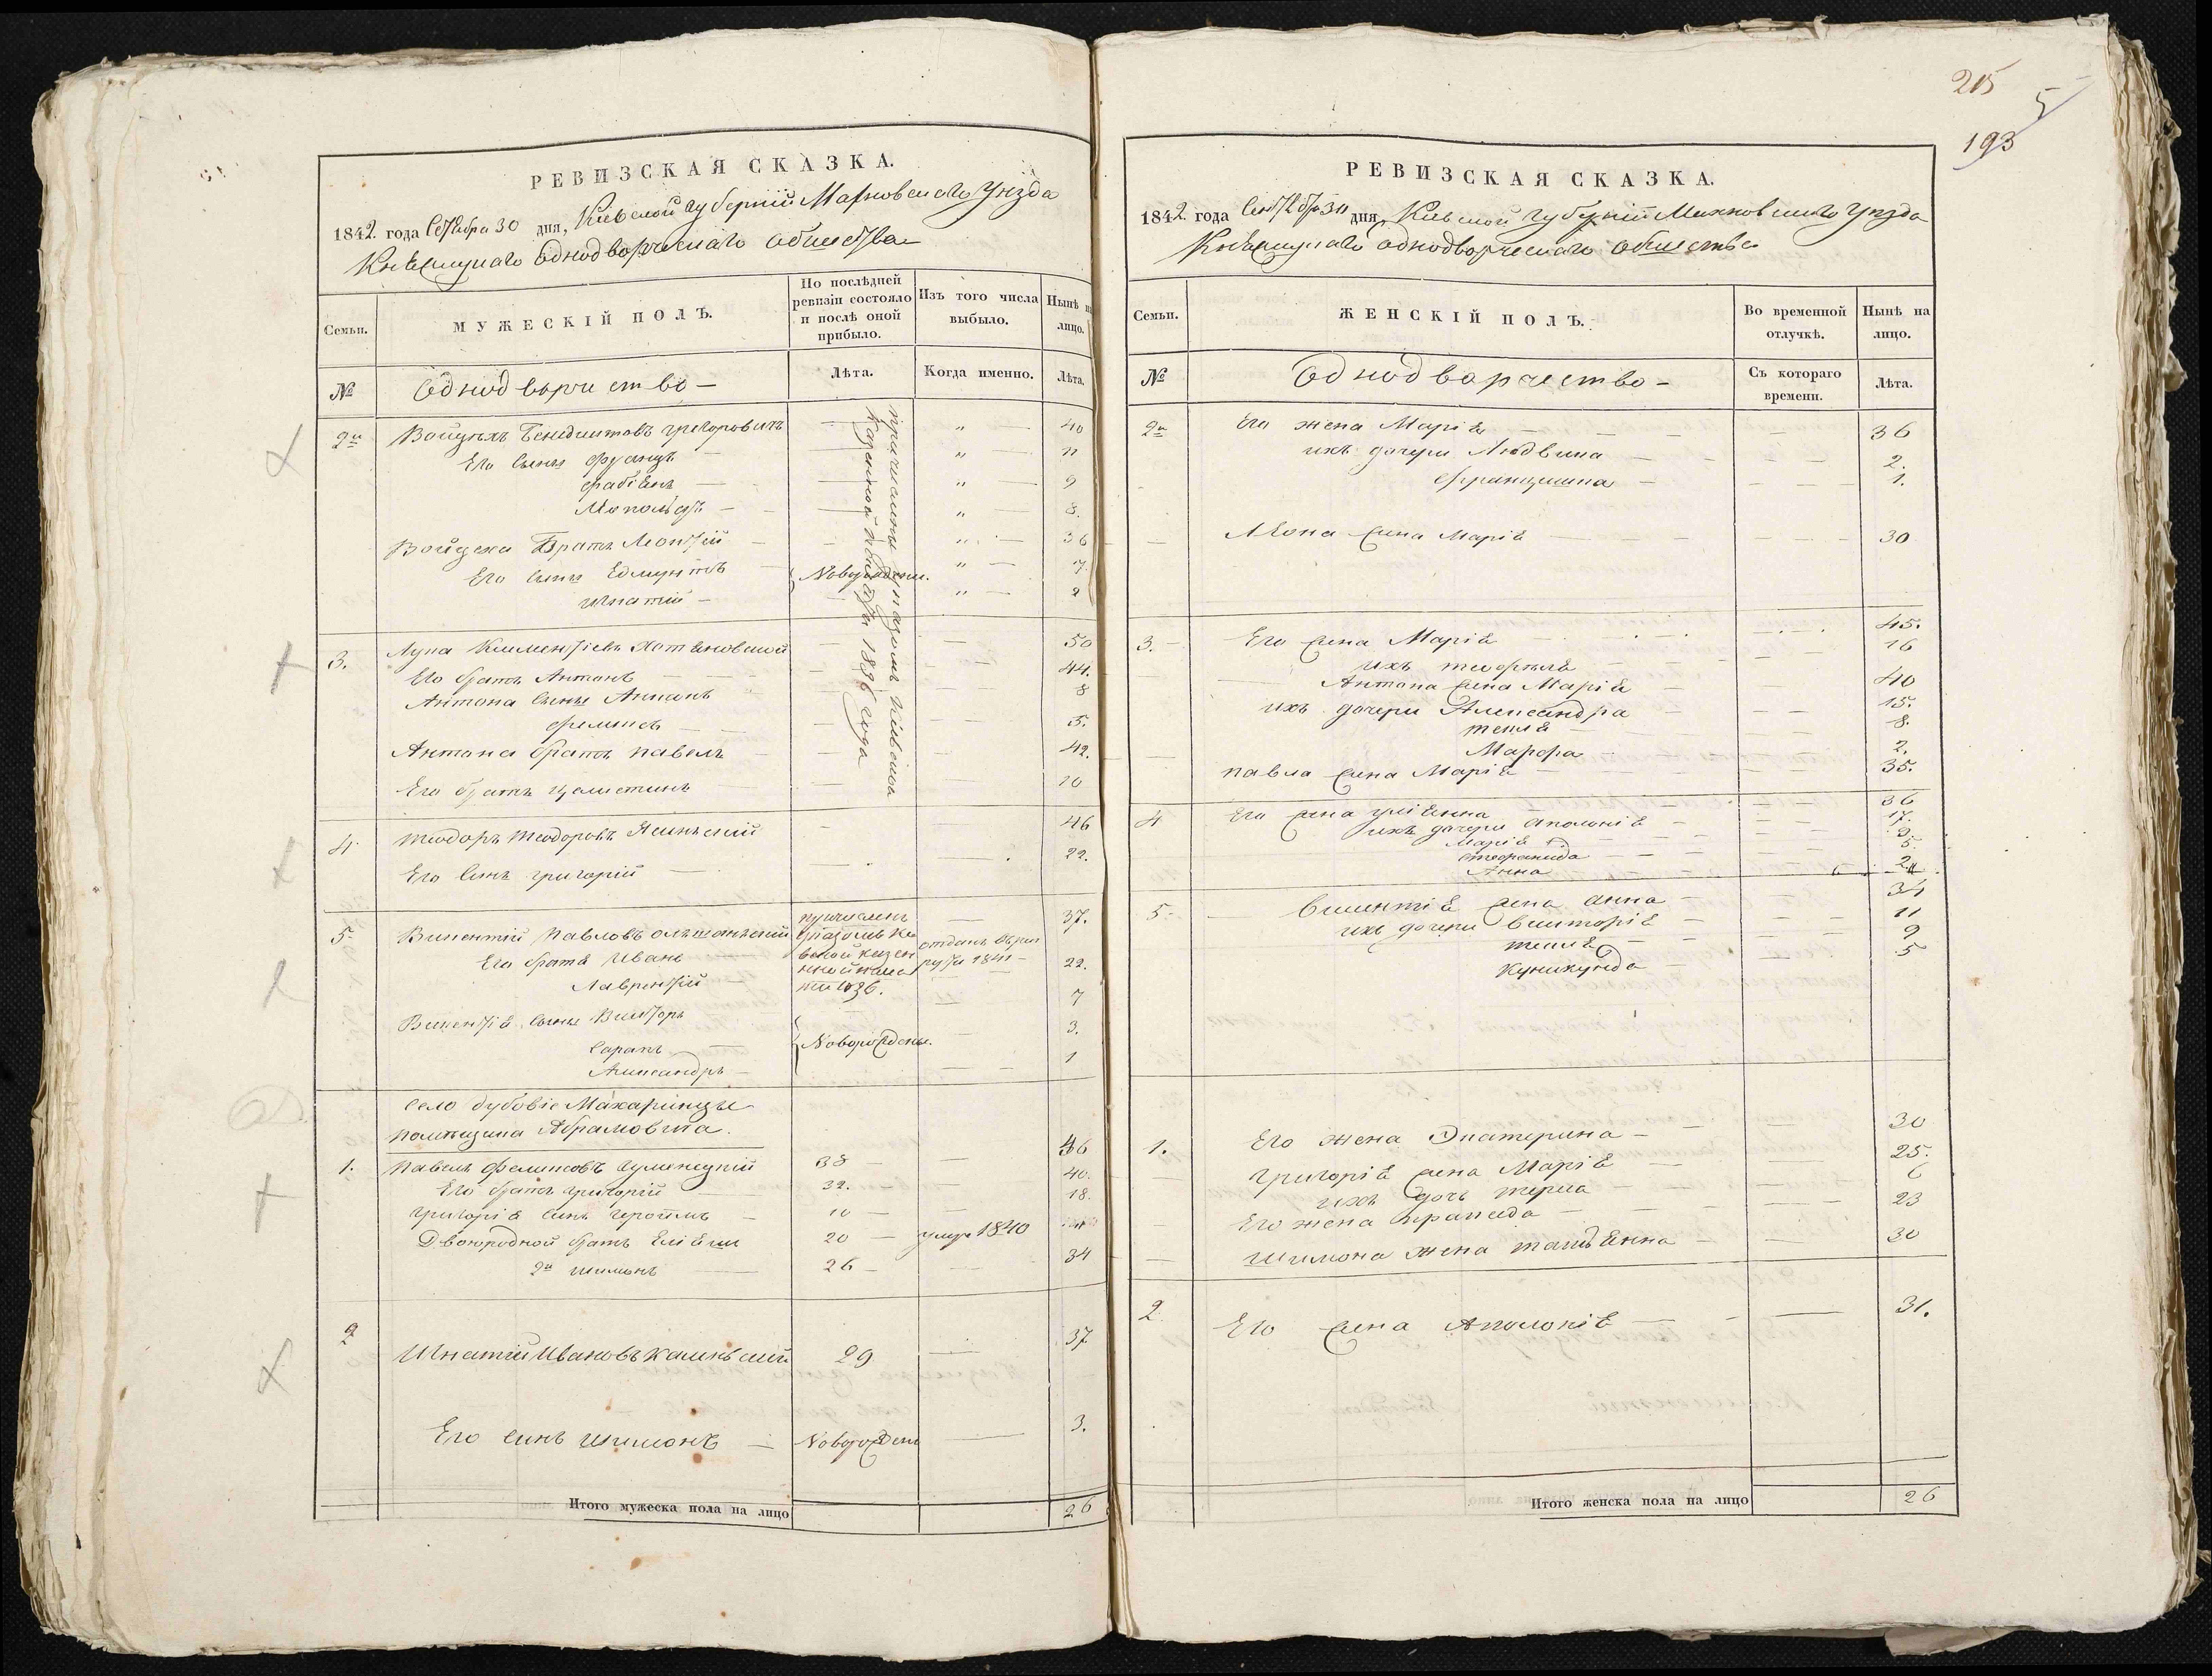 РЕВИЗСКАЯ СКАЗКА.
1842 года Сентября 30 дня, Кіевской губерніи Махновскаго Уезда
Однодворческаго общества
Семьи.
МУЖЕСКІЙ ПОЛЪ.
По послѣдней ревизіи состояло и послѣ оной прибыло.
Изъ того числа выбыло.
Нынѣ на лицо.
№
Однодворчество —
Лѣта.
Когда именно.
Лѣта.
причислены указомъ Кіевской
Казенной Палаты 1836 года
2й Войцехъ Бенедиктовъ Григоровичъ — " — 40
Его сыны Францъ — " — 11
Фабіянъ — " — 9
Леопольдъ — " — 8.
Войцеха братъ Леонтій — " — 36
Его сыны Едмунтъ — Новорожден. " — 7.
Игнатій — " — 2
3. Лука Климентіевъ 50
Его братъ Антонъ 44.
Антона сыны 8
Феликсъ 5.
Антона братъ Павелъ — 42.
Его братъ Целистинъ 10
4. Теодоръ Теодоровъ Ясинскій 46
Его сынъ Григорій — 22.
5. Викентій Павловъ 37.
причисленъ указомъ Кіевской казенной палаты 1836.
Его брата Иванъ отданъ въ рекруты 1841 —
22.
Лаврентій — 7
Викентія сыны Викторъ 3.
Новорождены.
Александръ — 1
село Дубовіе Махаринцы
помѣщика Абрамовича.
1. Павелъ Феликсовъ 38 — 46
Его братъ Григорій 32. — 40.
Григорія сынъ 10 — 18.
Двоюродной братъ 20 — умре 1840
2й Шимонъ 26 — 34
2 Игнатій Ивановъ Каминскій 29 — 37
Его сынъ Шимонъ — Новорожден — 3.
Итого мужеска пола на лицо 26
215
5
193
РЕВИЗСКАЯ СКАЗКА.
1842 года Сентября 30 дня, Кіевской губерніи Махновскаго Уезда
Однодворческаго общества
Семьи.
ЖЕНСКІЙ ПОЛЪ.
Во временной отлучкѣ.
Нынѣ на лицо.
№
Однодворчество —
Съ котораго времени.
Лѣта.
2й Его жена Марія — 36
ихъ дочери Людвика — 2.
Францишка — 1.
Леона жена Марія — 30
3. — Его жена Марія — 45.
ихъ 16
Антона жена Марія — 40
ихъ дочери Александра — 15.
Текля — 8.
Марфа — 2.
Павла жена Марія — 35.
4 Его жена Уліянна — 36
ихъ дочери Аполонія — 17.
Марія 9.
Стефанида — 5.
Анна — 2.
5 — Викентія жена Анна — 34
ихъ дочери Викторія — 11
Текля — 9
Кунихунда — 5
1. Его жена Екатерина — 30
Григорія жена Марія — 25.
ихъ дочь 6
Его жена 23
Шимона жена 30
2 Его жена Аполонія — 31.
Итого женска пола на лицо 26